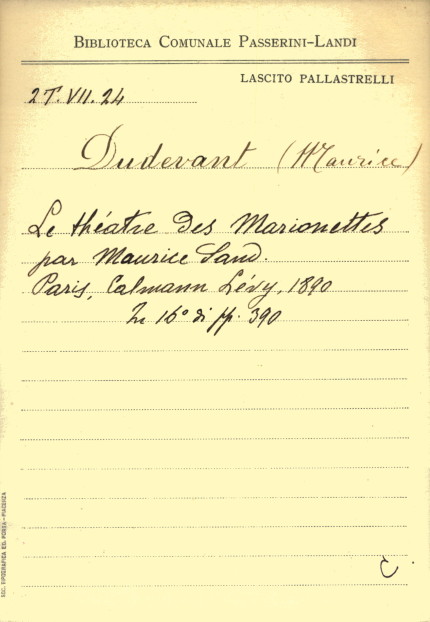 BIBLIOTECA COMUNALE PASSERINI-LANDI
LASCITO PALLASTRELLI
2T.VII.24
Dudevant (Maurice)
Le théatre des Marionettes
par Maurice Sand.
Paris, Calmann Lévy, 1890
In 16° di pp. 390
C.
SOC. TIPOGRAFICA ED. PORTA-PIACENZA